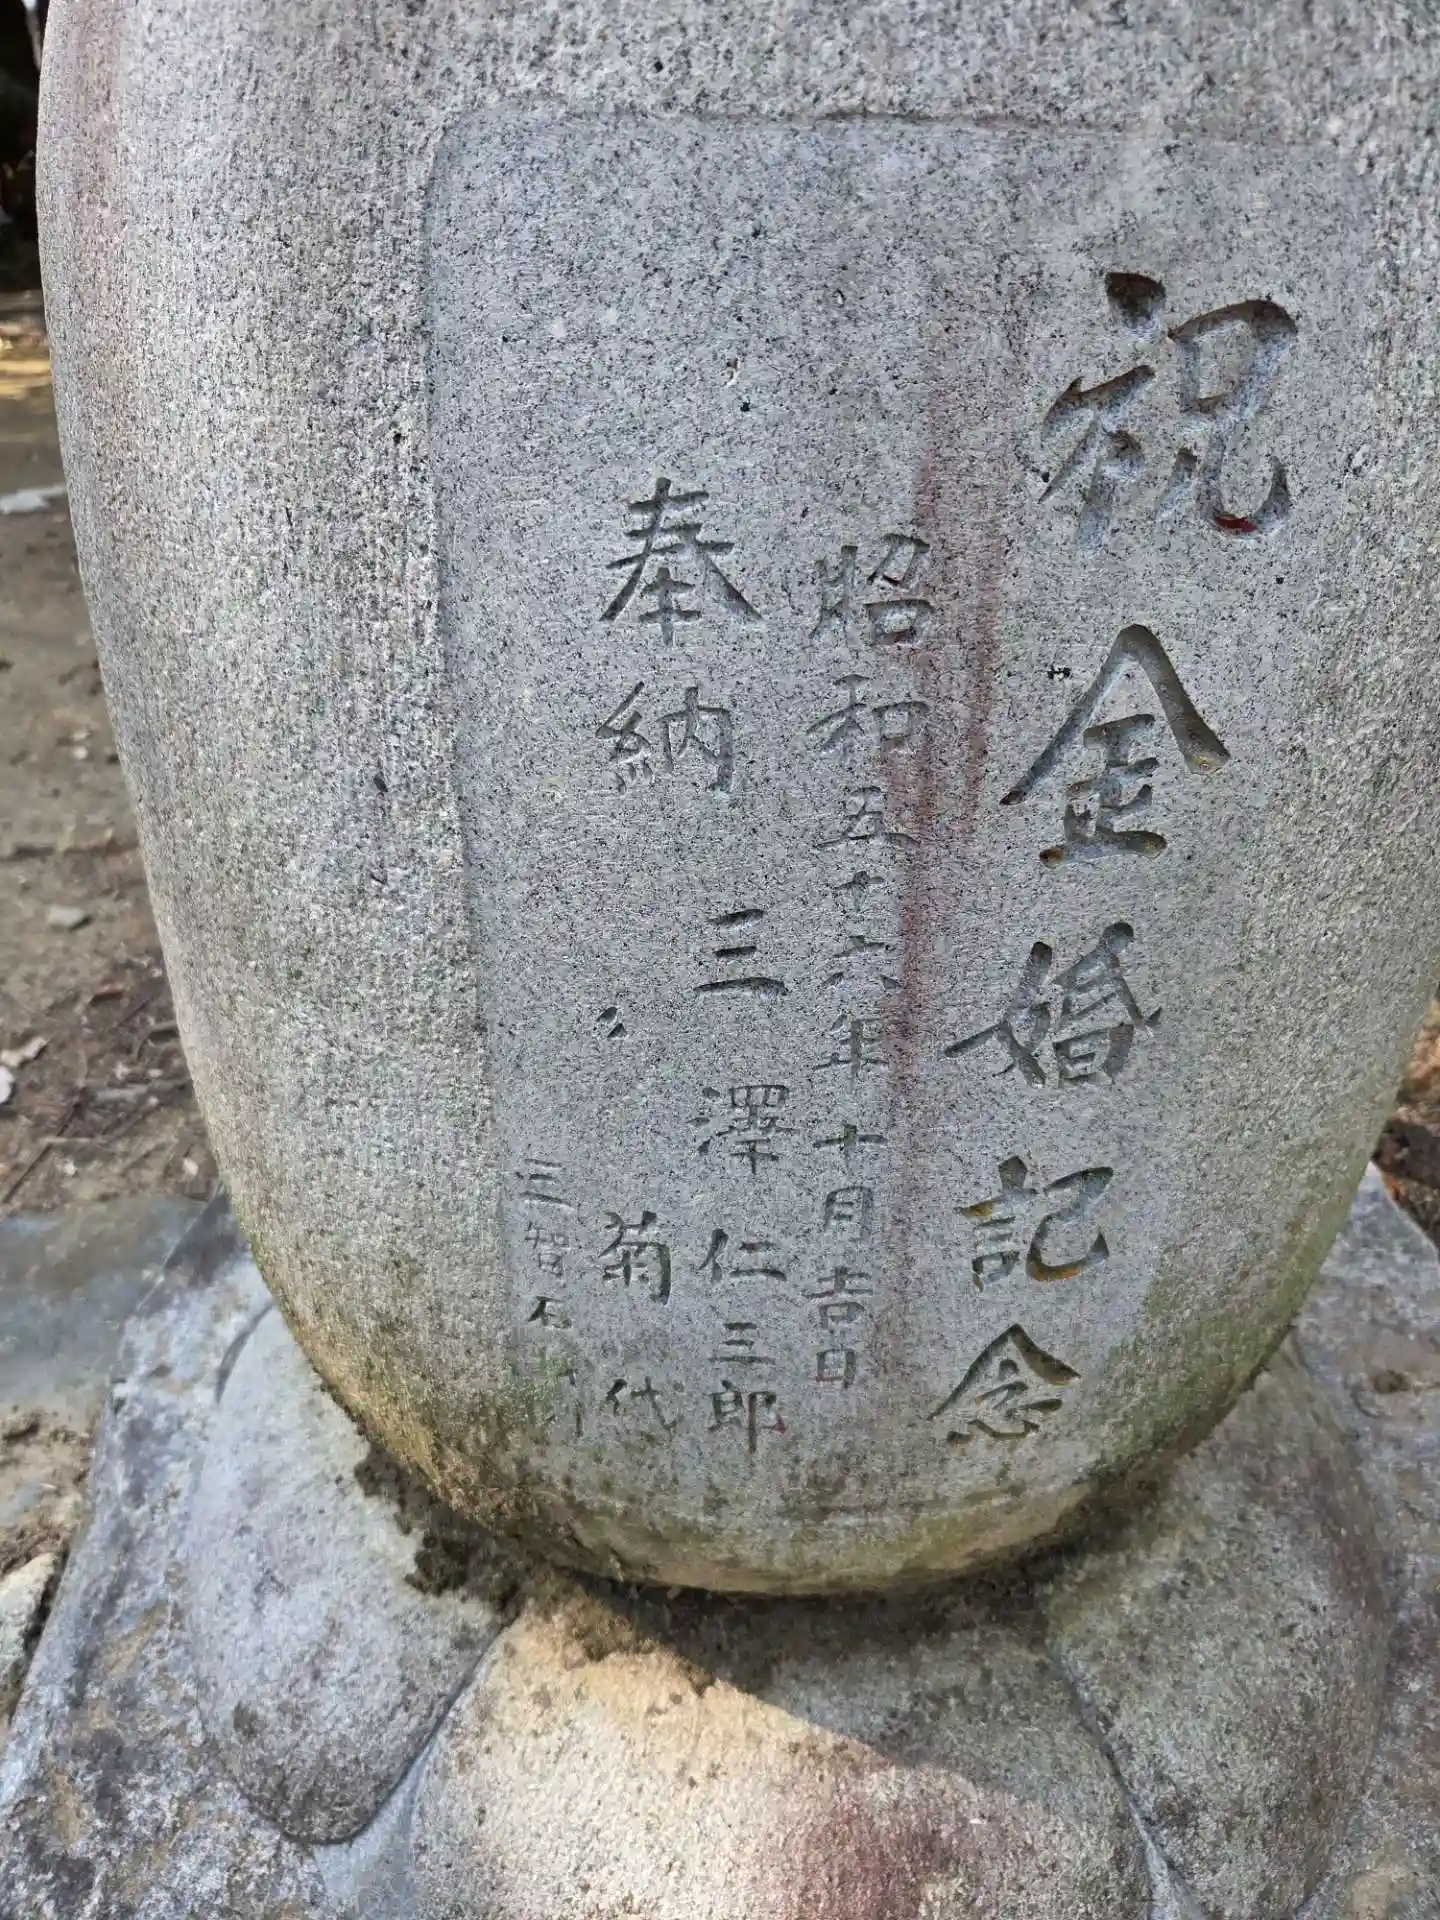 祝金婚記念
昭和五十六年十月吉日
奉納 三澤仁三郎
〃 菊代
三智石材